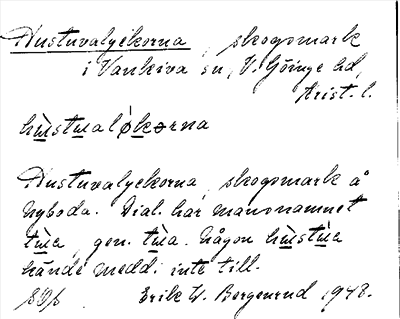 Hustuvalyckorna, skogsmark
i Vankiva sn, V. Göinge hd,
Krist. l.
hùstualøkorna
Hustuvalyckorna, skogsmark å
Nyboda. Dial. har mansnamnet
tùa, gen. tùa. Någon hùstùa
hände medd. inte till.
Erik W. Bergenrud 1948.